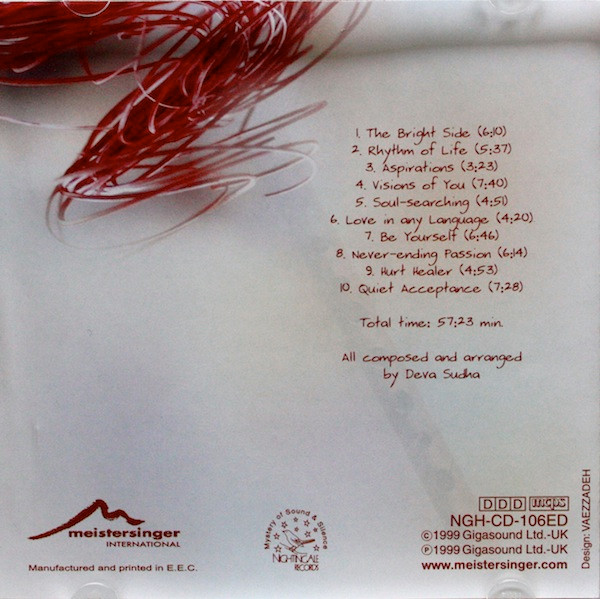 1. The Bright Side (6:10)
2. Rhythm of Life (5:37)
3. Aspirations (3:23)
4. Visions of You (7:40)
5. Soul-searching (4:51)
6. Love in any Language (4:20)
7. Be Yourself (6:46)
8. Never-ending Passion (6:14)
9. Hurt Healer (4:53)
10. Quiet Acceptance (7:28)
Total time: 57:23 min.
All composed and arranged
by Deva Sudha
meistersinger
INTERNATIONAL
Manufactured and printed in E.E.C.
Mystery of Sound & Silence
NIGHTINGALE
RECORDS
DDD mcps
NGH-CD-106ED
©1999 Gigasound Ltd.-UK
℗1999 Gigasound Ltd.-UK
www.meistersinger.com
Design: VAEZZADEH